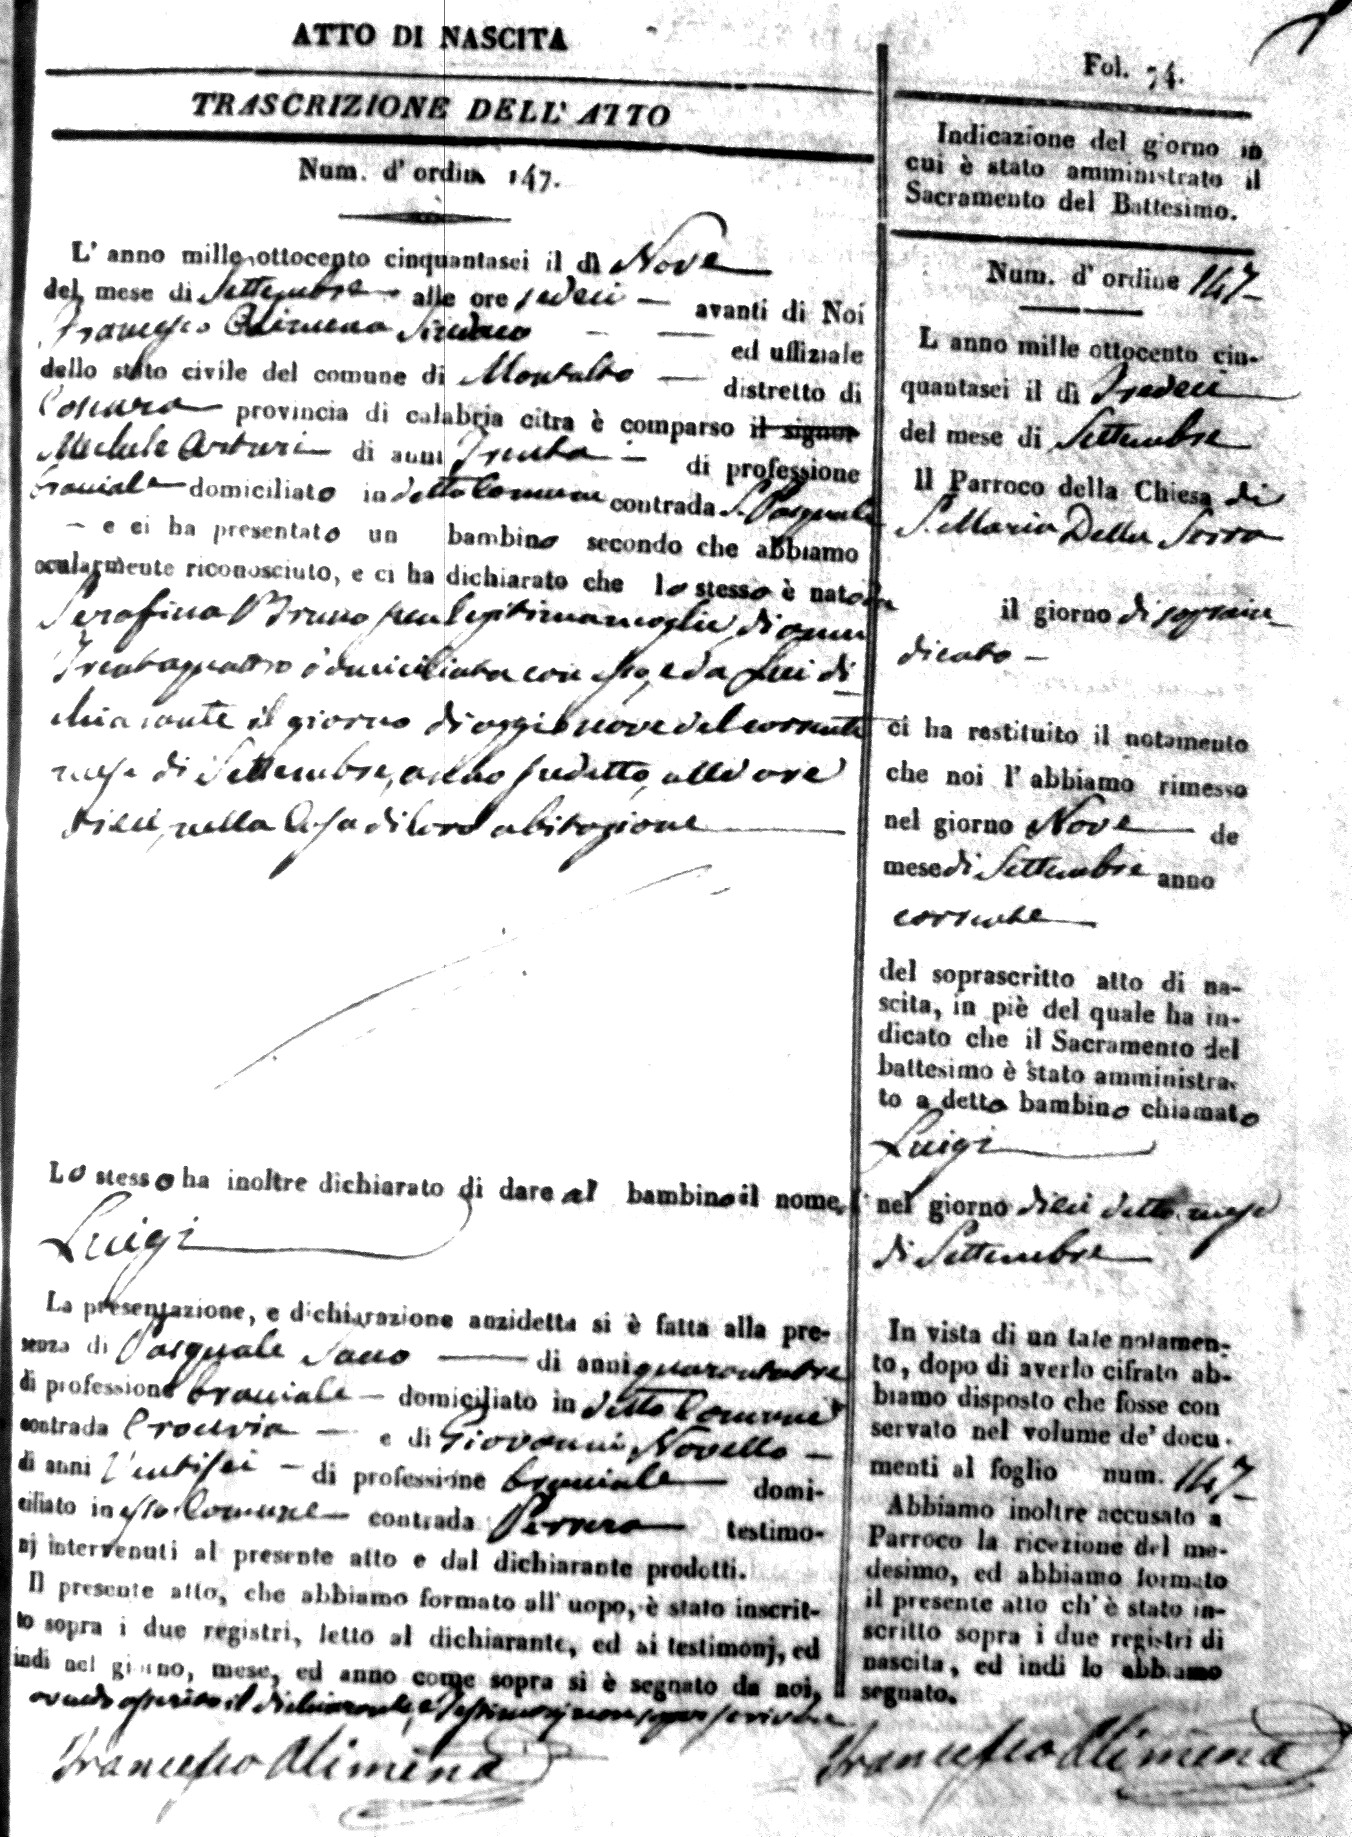 ATTO DI NASCITA
TRASCRIZIONE DELL' ATTO
Num. d' ordine 147.
L' anno mille ottocento cinquantasei il dì Nove
del mese di Settembre alle ore sedeci — avanti di Noi
Francesco Alimena Sindaco — — ed uffiziale
dello stato civile del comune di Montalto — distretto di
Cosenza provincia di calabria citra è comparso il signor
Michele Arturi di anni Trenta — di professione
bracciale domiciliato in detto Comune contrada S. Pasquale
— e ci ha presentato un bambino secondo che abbiamo
ocularmente riconosciuto, e ci ha dichiarato che lo stesso è nato da
Serafina Bruno sua legittima moglie di anni
Trentaquattro domiciliata con esso, e da Lui di
chiarante il giorno di oggi nove del corrente
mese di Settembre, anno sudetto, alle ore
dieci, nella Casa di loro abitazione
Lo stesso ha inoltre dichiarato di dare al bambino il nome di
Luigi
La presentazione, e dichiarazione anzidetta si è fatta alla pre-
senza di Pasquale Sacco — di anni quarantatre
di professione bracciale — domiciliato in detto Comune
contrada — e di Giovanni Novello —
di anni Ventisei — di professione bracciale domi-
ciliato in esso Comune contrada testimo-
nj intervenuti al presente atto e dal dichiarante prodotti.
Il presente atto, che abbiamo formato all' uopo, è stato inscrit-
to sopra i due registri, letto al dichiarante, ed ai testimonj, ed
indi nel giorno, mese, ed anno come sopra si è segnato da noi,
avendo asserito il dichiarante, e Testimonj non saper scrivere
Francesco Alimena
Fol. 74.
Indicazione del giorno in
cui è stato amministrato il
Sacramento del Battesimo.
Num. d' ordine 147
L anno mille ottocento cin-
quantasei il dì Tredeci
del mese di Settembre
Il Parroco della Chiesa di
S. Maria Della Serra
il giorno di soprain
dicato —
ci ha restituito il notamento
che noi l' abbiamo rimesso
nel giorno Nove de
mese di Settembre anno
corrente
del soprascritto atto di na-
scita, in piè del quale ha in-
dicato che il Sacramento del
battesimo è stato amministra-
to a detto bambino chiamato
Luigi
nel giorno dieci detto mese
di Settembre
In vista di un tale notamen-
to, dopo di averlo cifrato ab-
biamo disposto che fosse con
servato nel volume de' docu-
menti al foglio num. 147
Abbiamo inoltre accusato a
Parroco la ricezione del me-
desimo, ed abbiamo formato
il presente atto ch' è stato in-
scritto sopra i due registri di
nascita, ed indi lo abbiamo
segnato.
Francesco Alimena